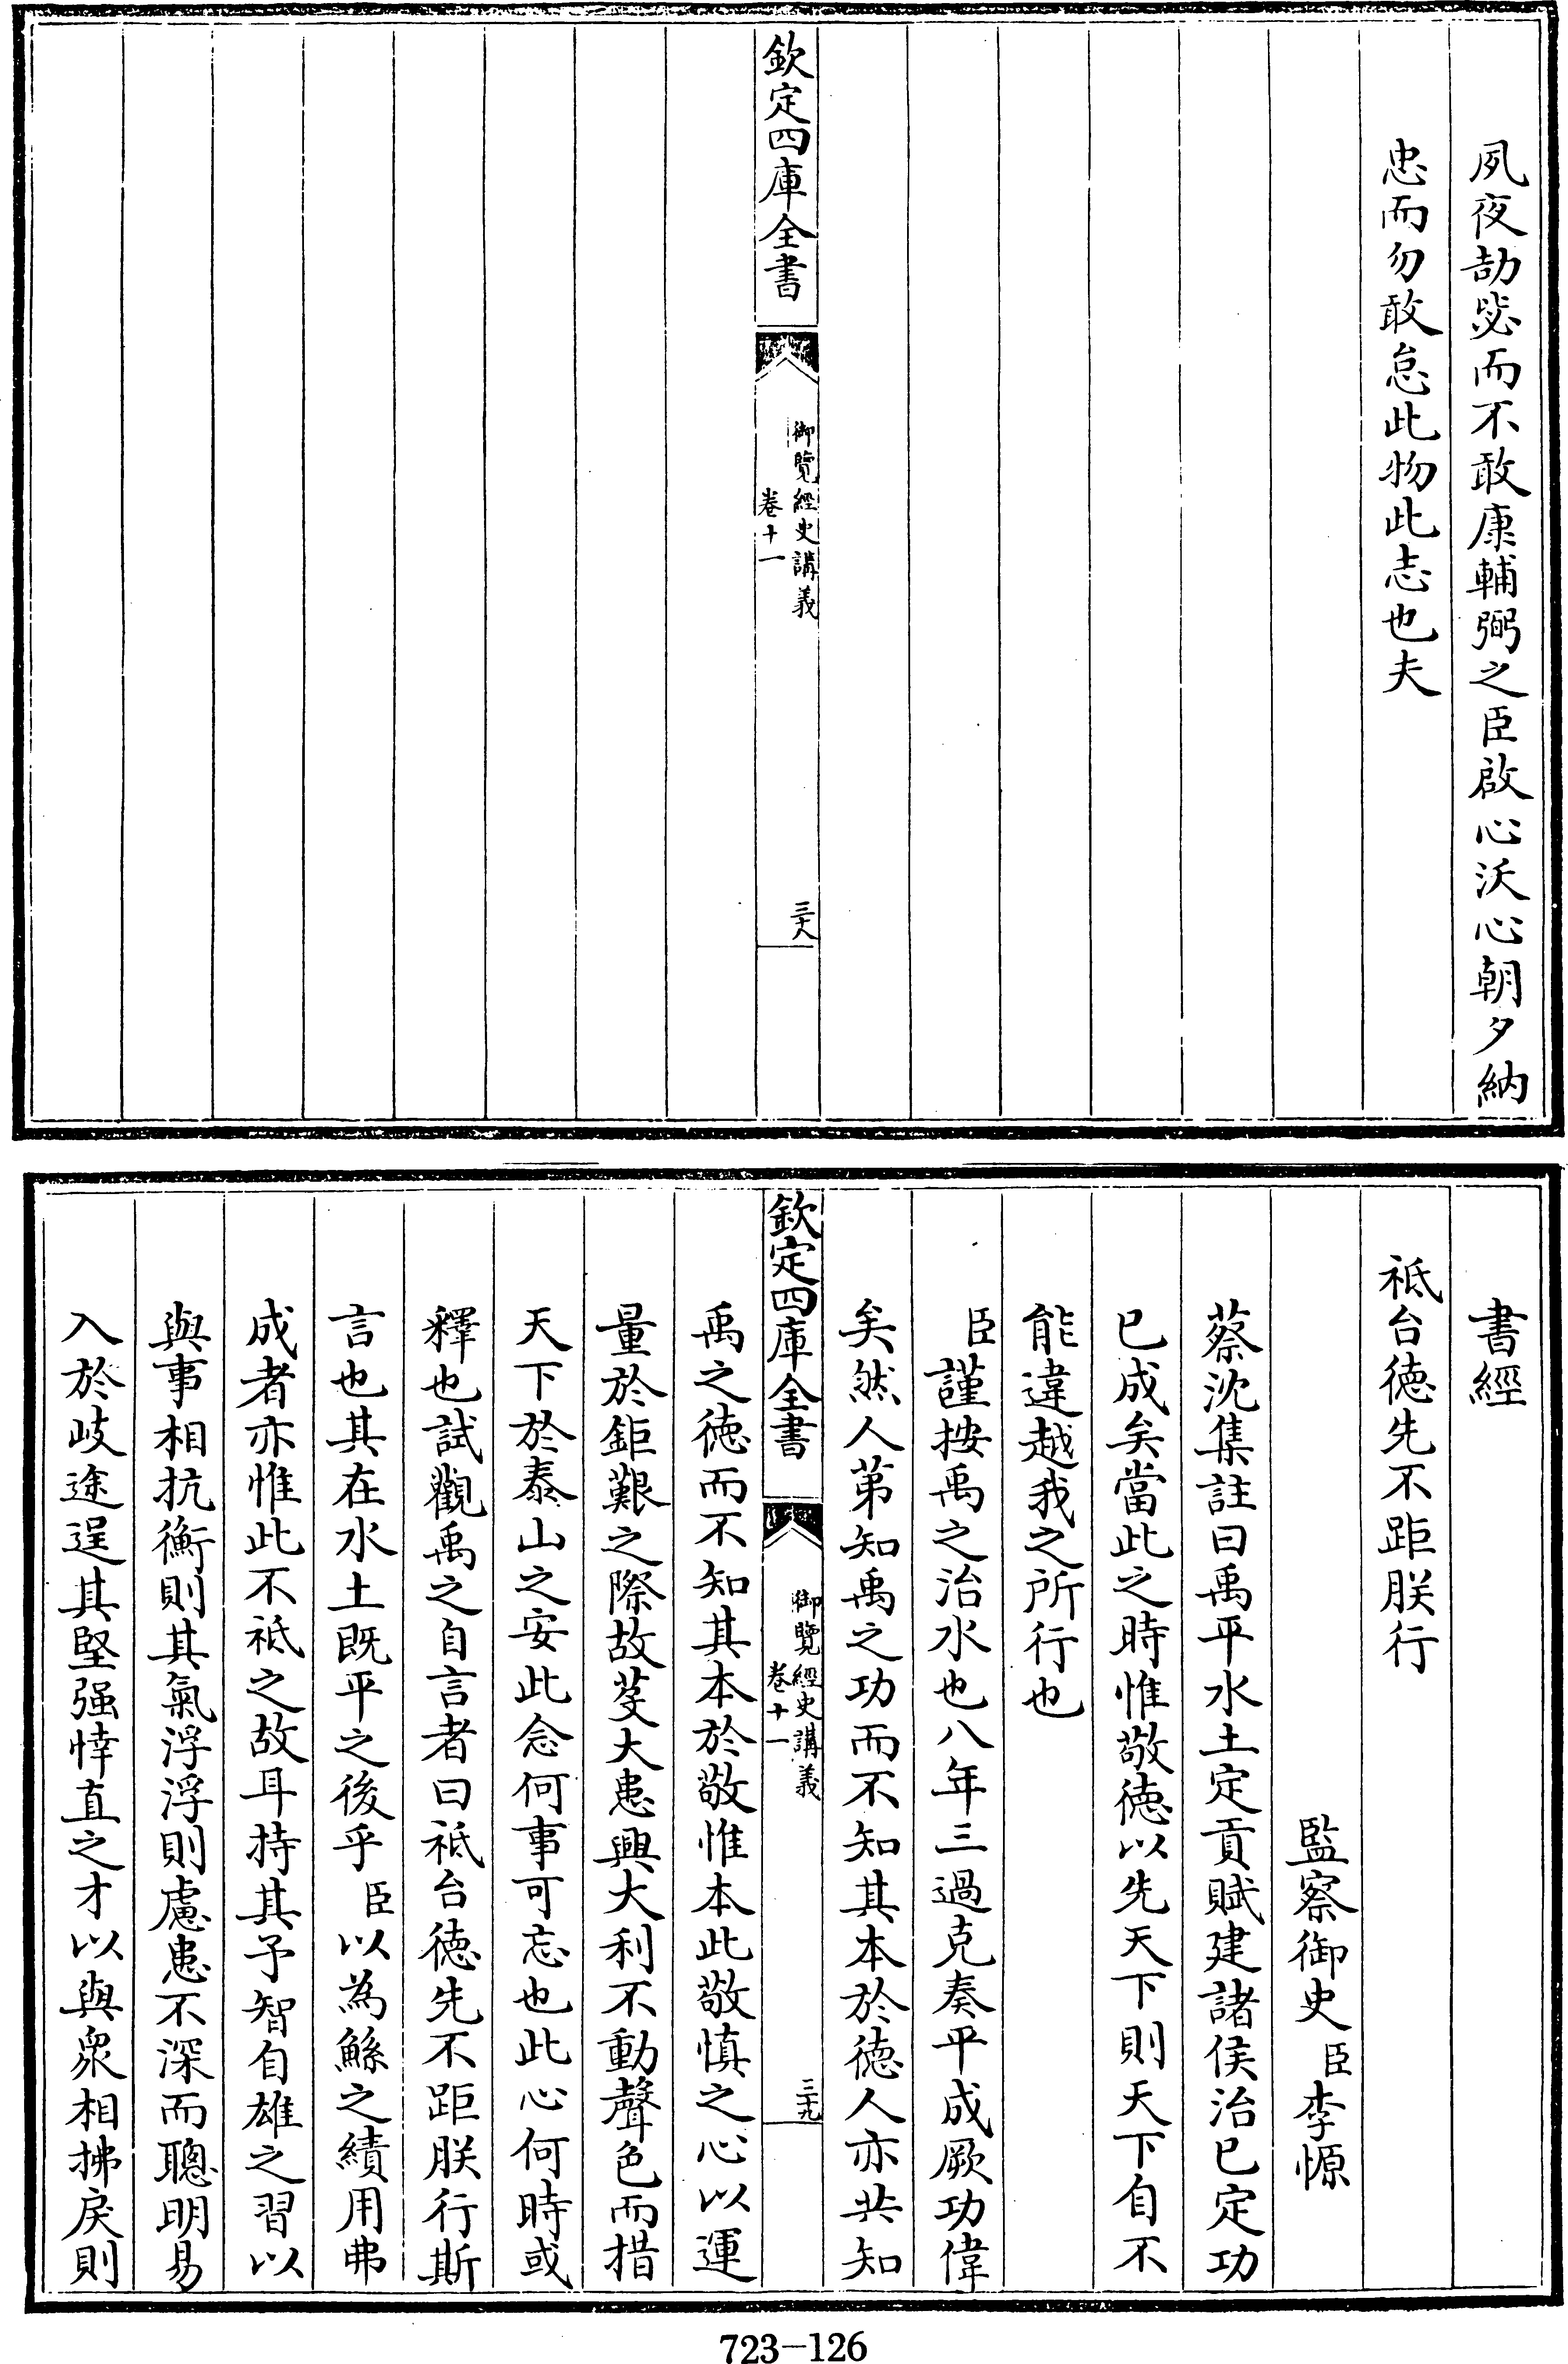 夙夜劼毖而不敢康輔弼之臣啟心沃心朝夕納
忠而勿敢怠此物此志也夫
欽定四庫全書
御覽經史講義
卷十一
三十八
書經
祗台徳先不距朕行
監察御史臣李㥳
蔡沈集註曰禹平水土定貢賦建諸侯治已定功
已成矣當此之時惟敬徳以先天下則天下自不
能違越我之所行也
臣謹按禹之治水也八年三過克奏平成厥功偉
矣然人第知禹之功而不知其本於徳人亦共知
欽定四庫全書
御覽經史講義
卷十一
三十九
禹之徳而不知其本於敬惟本此敬慎之心以運
量於鉅艱之際故芟大患興大利不動聲色而措
天下於泰山之安此念何事可忘也此心何時或
釋也試觀禹之自言者曰祗台徳先不距朕行斯
言也其在水土既平之後乎臣以為鯀之績用弗
成者亦惟此不祗之故耳持其予智自雄之習以
與事相抗衡則其氣浮浮則慮患不深而聰明易
入於歧途逞其堅强悻直之才以與衆相拂戾則
723-126